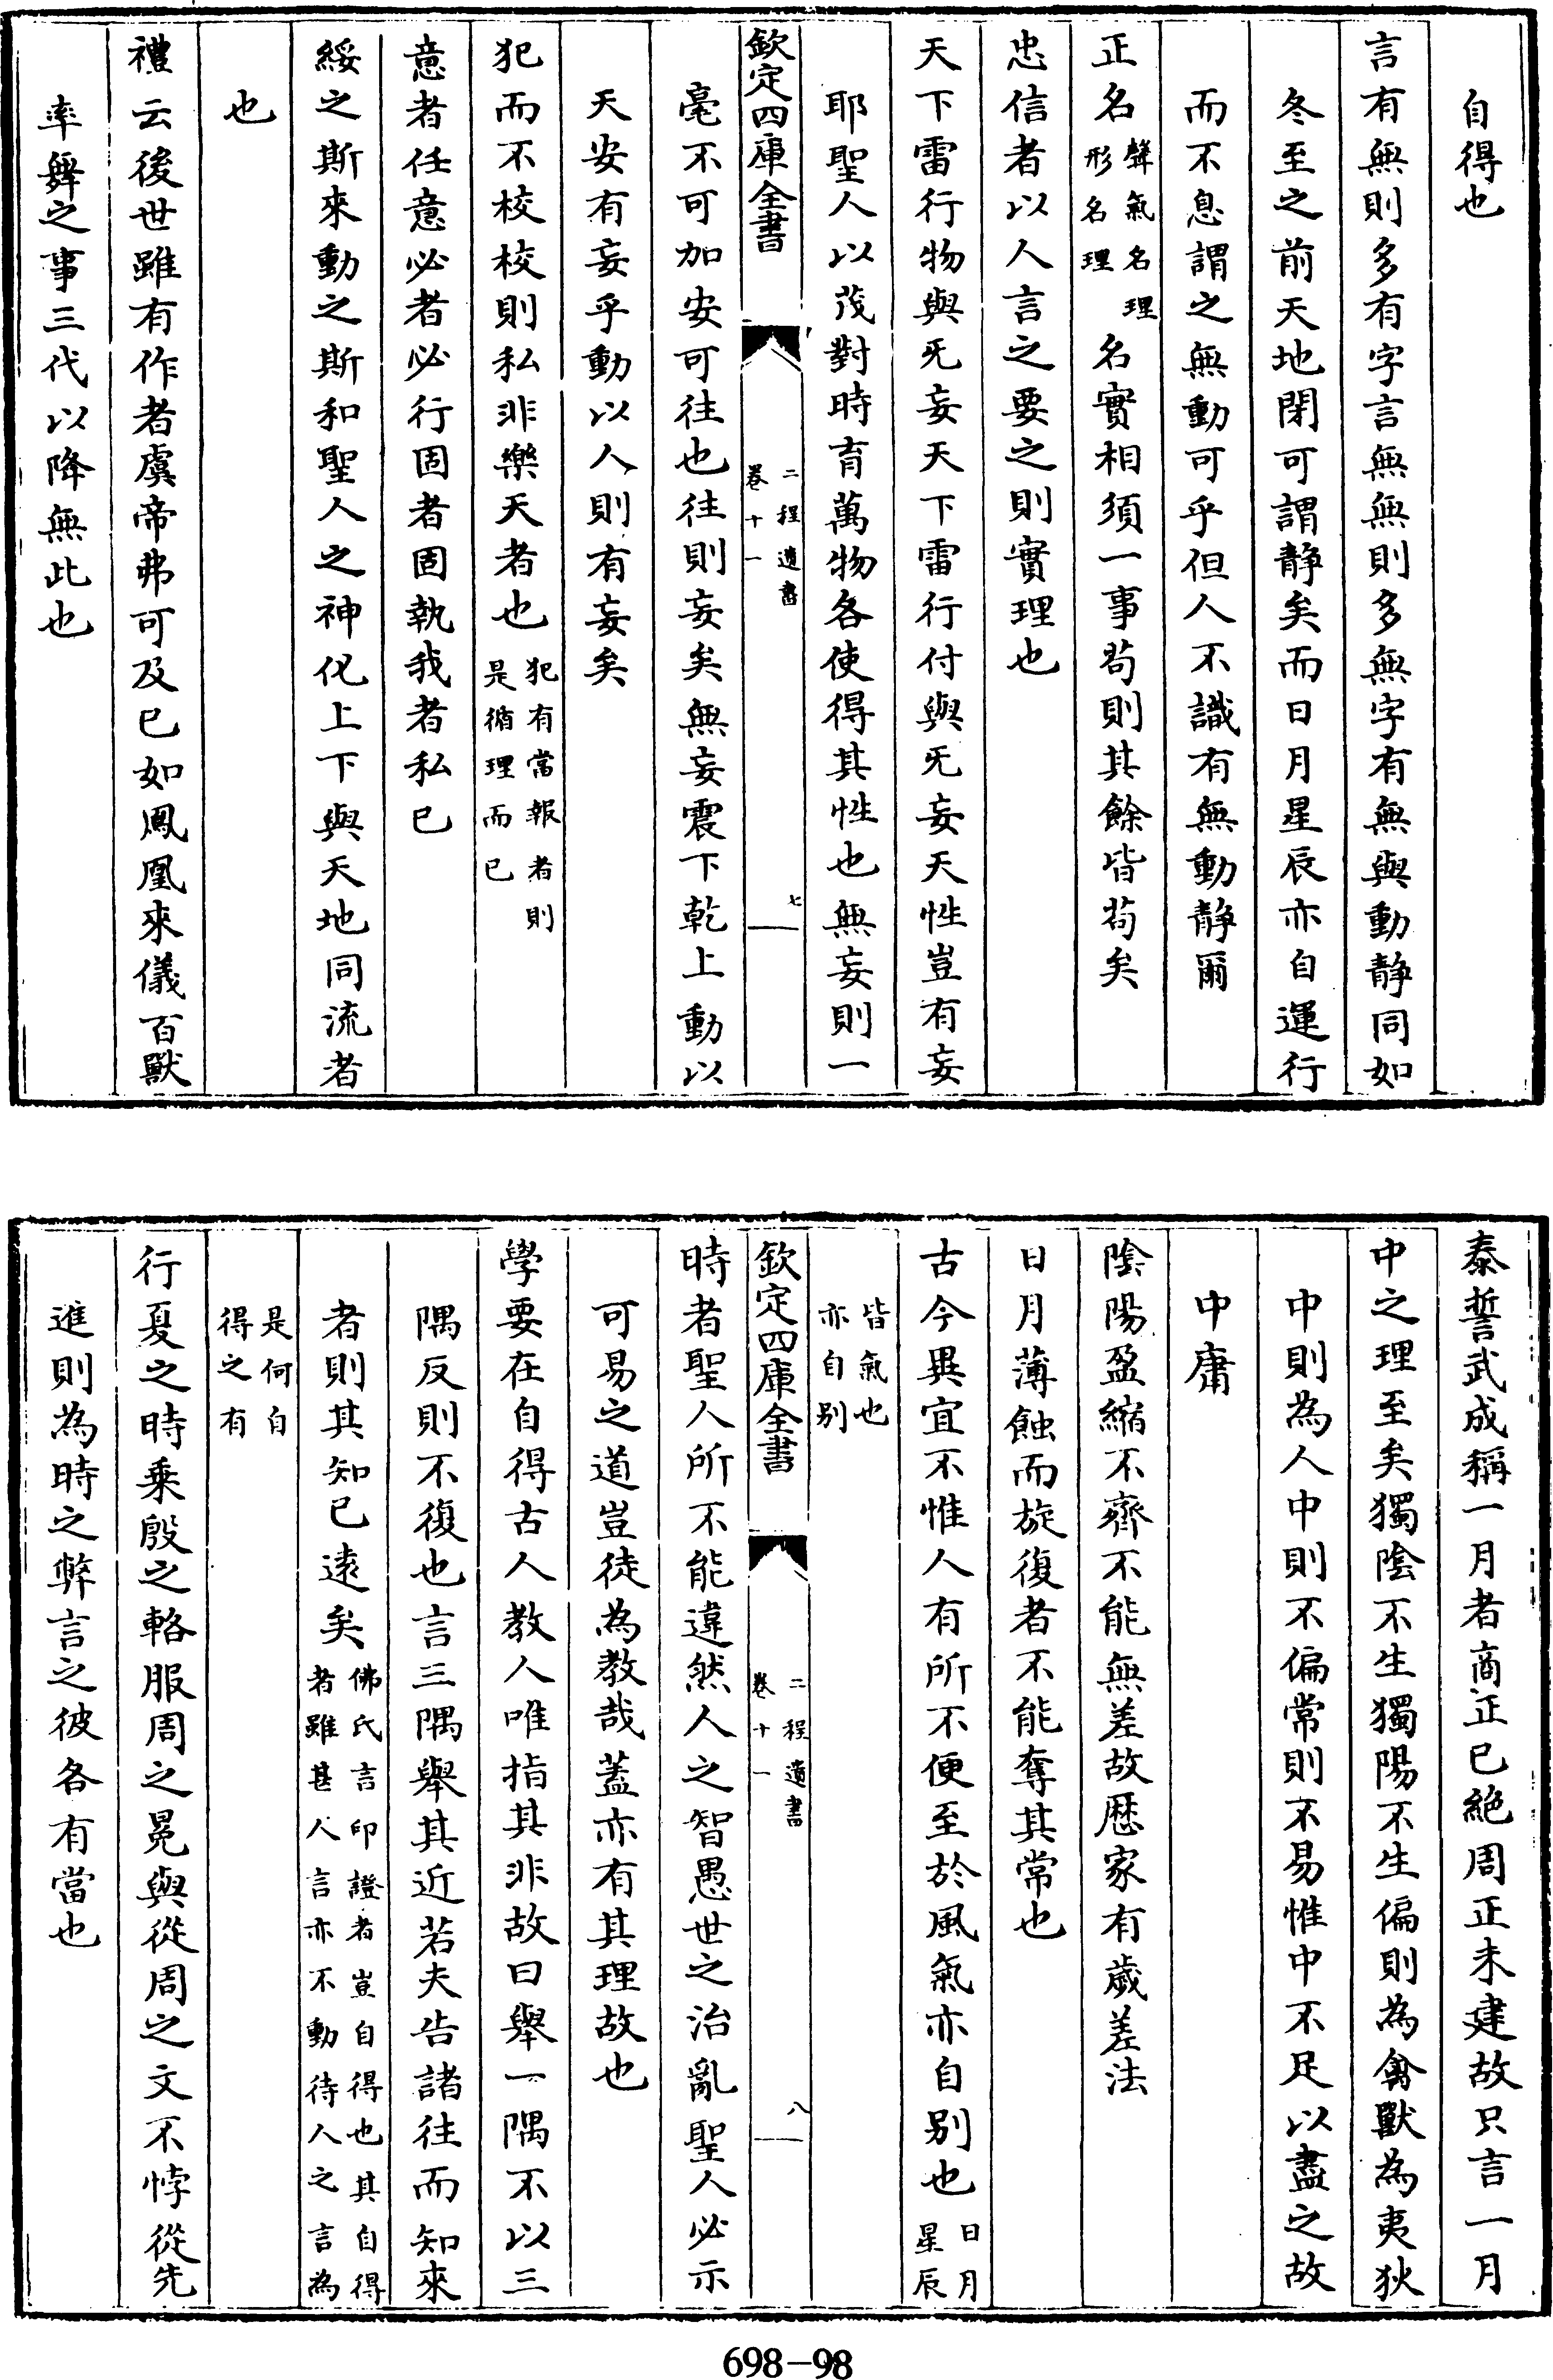 自得也
言有無則多有字言無無則多無字有無與動静同如
冬至之前天地閉可謂静矣而日月星辰亦自運行
而不息謂之無動可乎但人不識有無動静爾
正名聲氣名理形名名理名實相須一事茍則其餘皆茍矣
忠信者以人言之要之則實理也
天下雷行物與无妄天下雷行付與无妄天性豈有妄
耶聖人以茂對時育萬物各使得其性也無妄則一
欽定四庫全書
二程遺書
卷十一
七
毫不可加安可往也往則妄矣無妄震下乾上動以
天安有妄乎動以人則有妄矣
犯而不校校則私非樂天者也犯有當報者則是循理而已
意者任意必者必行固者固執我者私已
綏之斯來動之斯和聖人之神化上下與天地同流者
也
禮云後世雖有作者虞帝弗可及已如鳳凰來儀百獸
率舞之事三代以降無此也
泰誓武成稱一月者商正已絶周正未建故只言一月
中之理至矣獨陰不生獨陽不生偏則為禽獸為夷狄
中則為人中則不偏常則不易惟中不足以盡之故
中庸
陰陽盈縮不齊不能無差故厯家有歲差法
日月薄蝕而旋復者不能奪其常也
古今異宜不惟人有所不便至於風氣亦自别也日月星辰
皆氣也亦自别
欽定四庫全書
二程遺書
卷十一
八
時者聖人所不能違然人之智愚世之治亂聖人必示
可易之道豈徒為教哉蓋亦有其理故也
學要在自得古人教人唯指其非故曰舉一隅不以三
隅反則不復也言三隅舉其近若夫告諸往而知來
者則其知已遠矣佛氏言印證者豈自得也其自得者雖甚人言亦不動待人之言為
是何自得之有
行夏之時乘殷之輅服周之冕與從周之文不悖從先
進則為時之弊言之彼各有當也
698-98